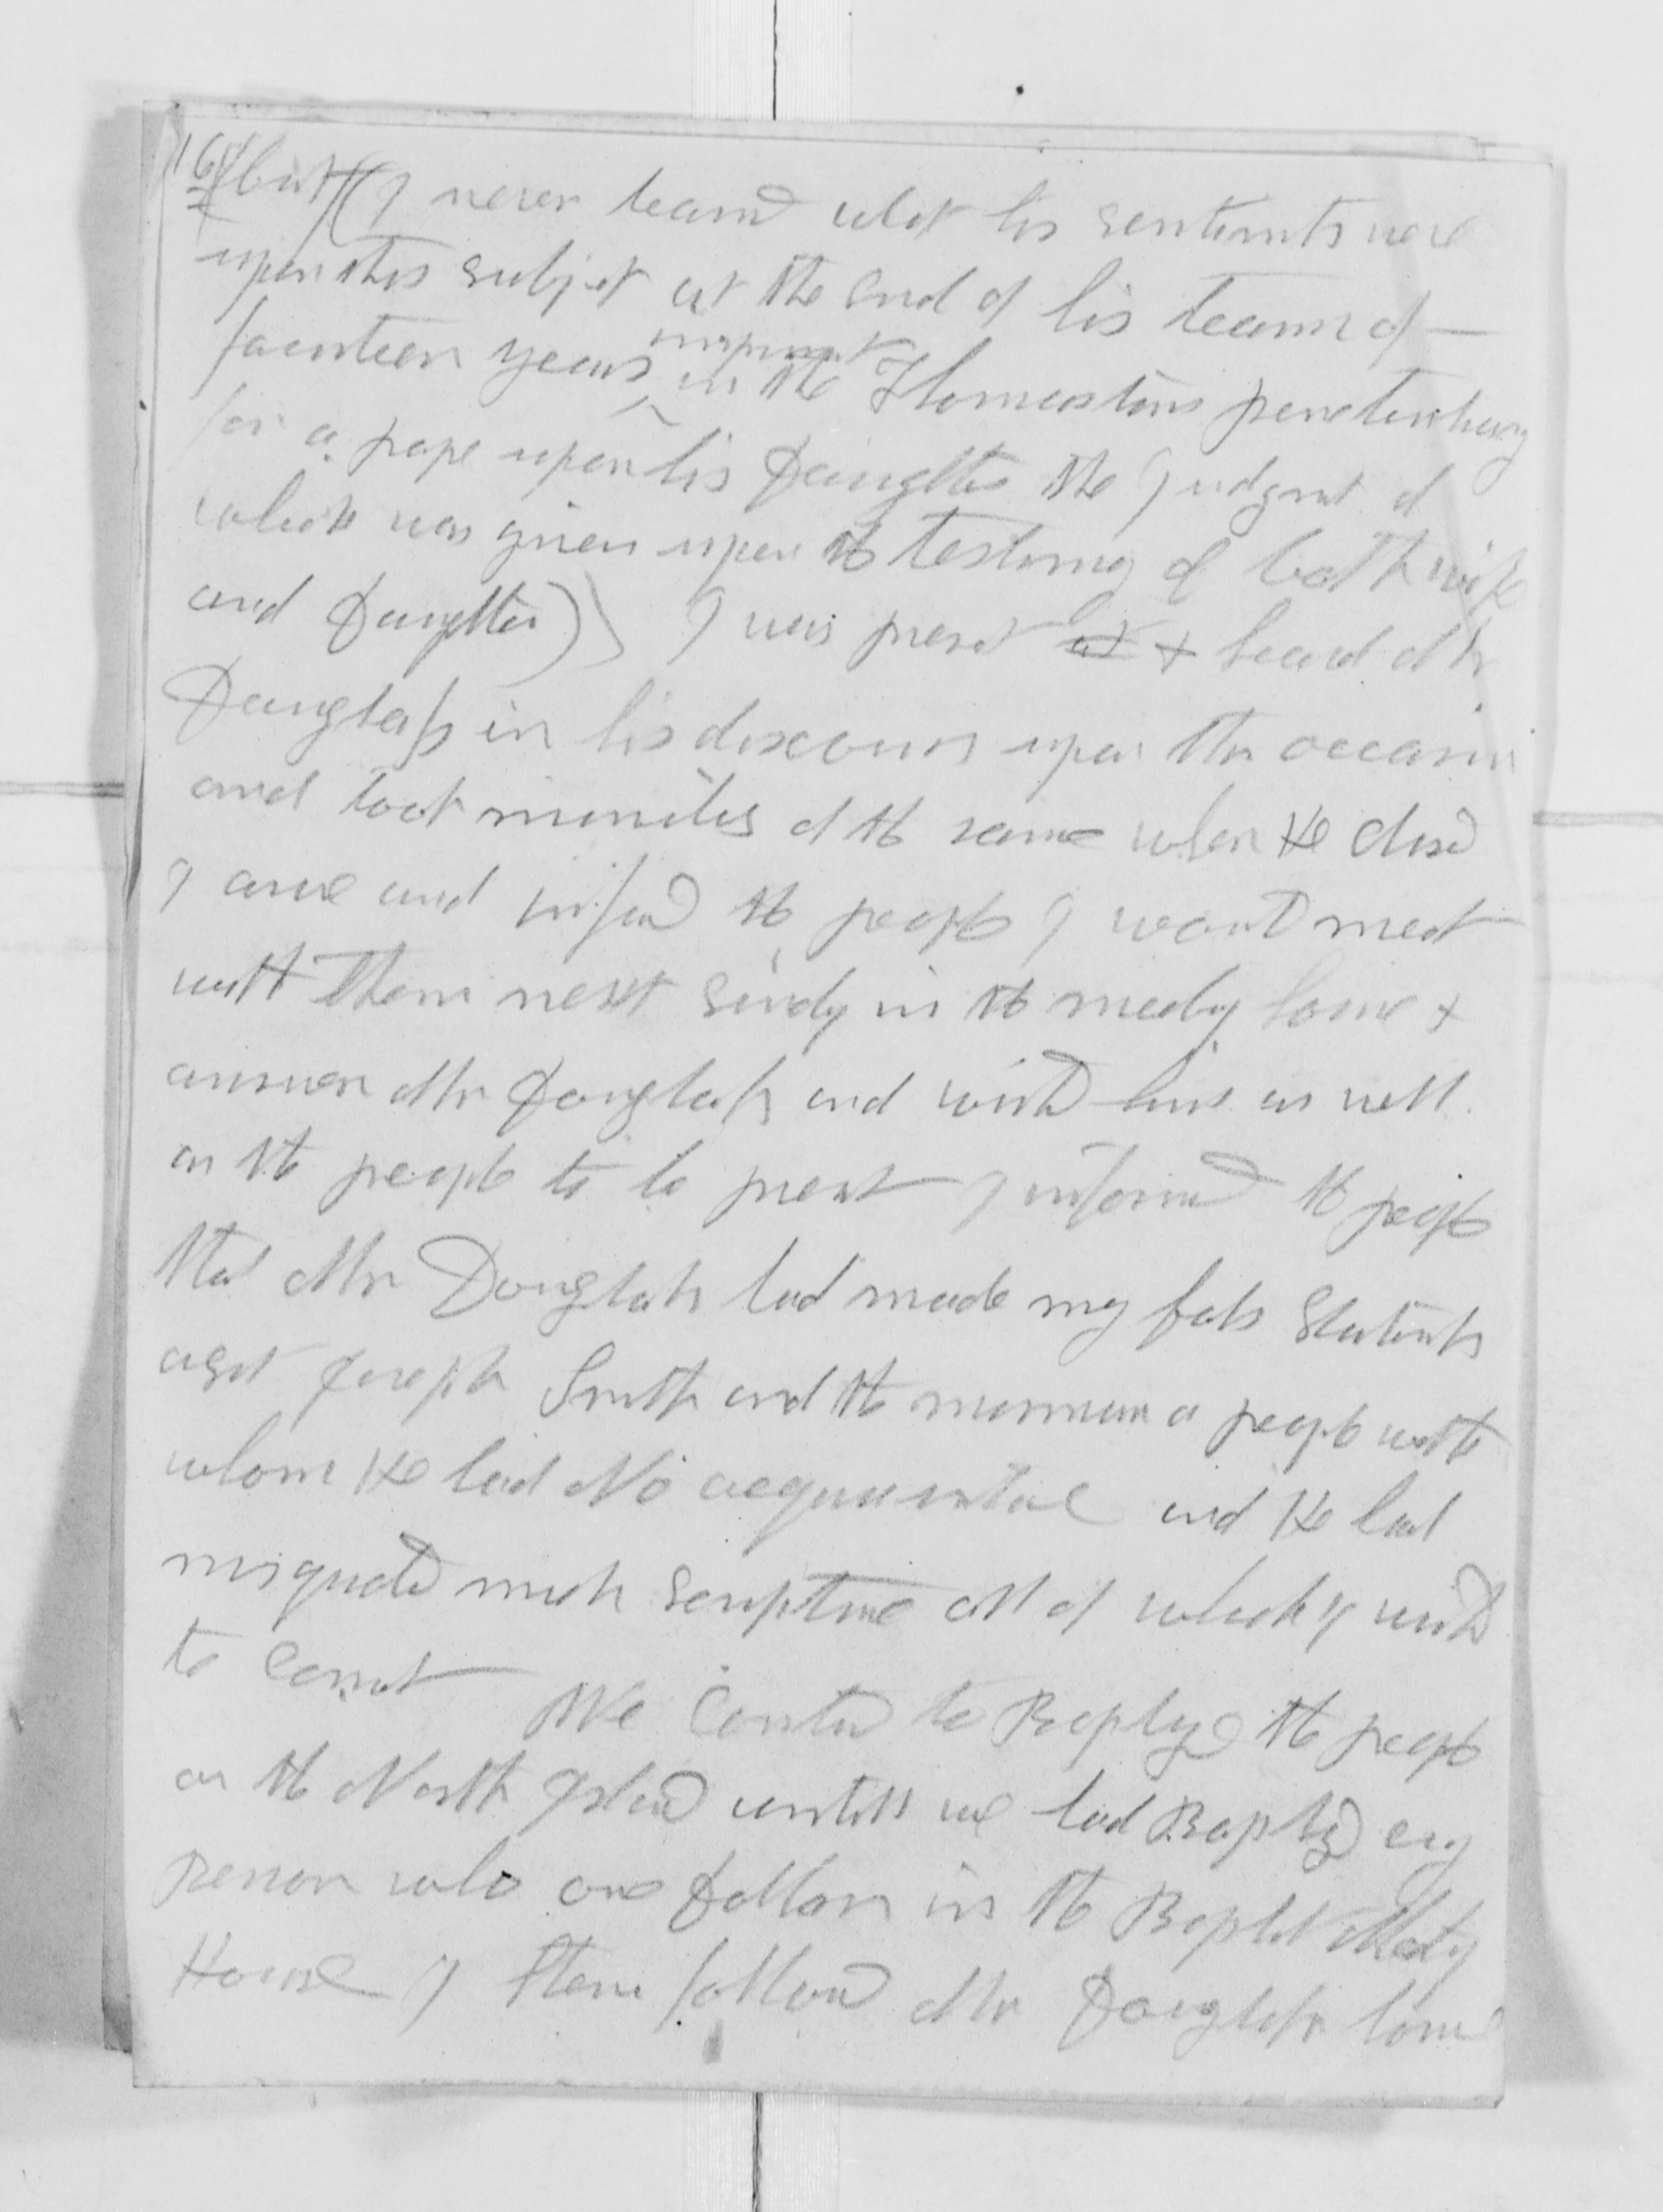 16
(but (I never learnd what his sentiments were
upon this subjet at the end of his tearm of —
fourteen years imprisment in the Thomastons penetentiary
for a rape upon his Daughter the Judgmt of
which was given upon the testimoy of both wife
and Daughter)) I was presnt at & heard Mr
Douglass in his discours upon the occasion
and took minutes of the same when He closed
I arose and infomd the people I would meet
with them next sundy in the meetig house &
answer Mr Douglass and wishd him as well
as the people to be presnt I informd the people
that Mr Douglass had made my fals Statemts
agst Joseph Smith and the mormons a people with
whom He had No acquaintance and He had
misquoted much scripture all of which I wishd
to corrct We Contind to Baptize the people
on the North Island untill we had Baptizd evry
person who owned in the Baptist Meetig
House I then followd Mr Douglass home